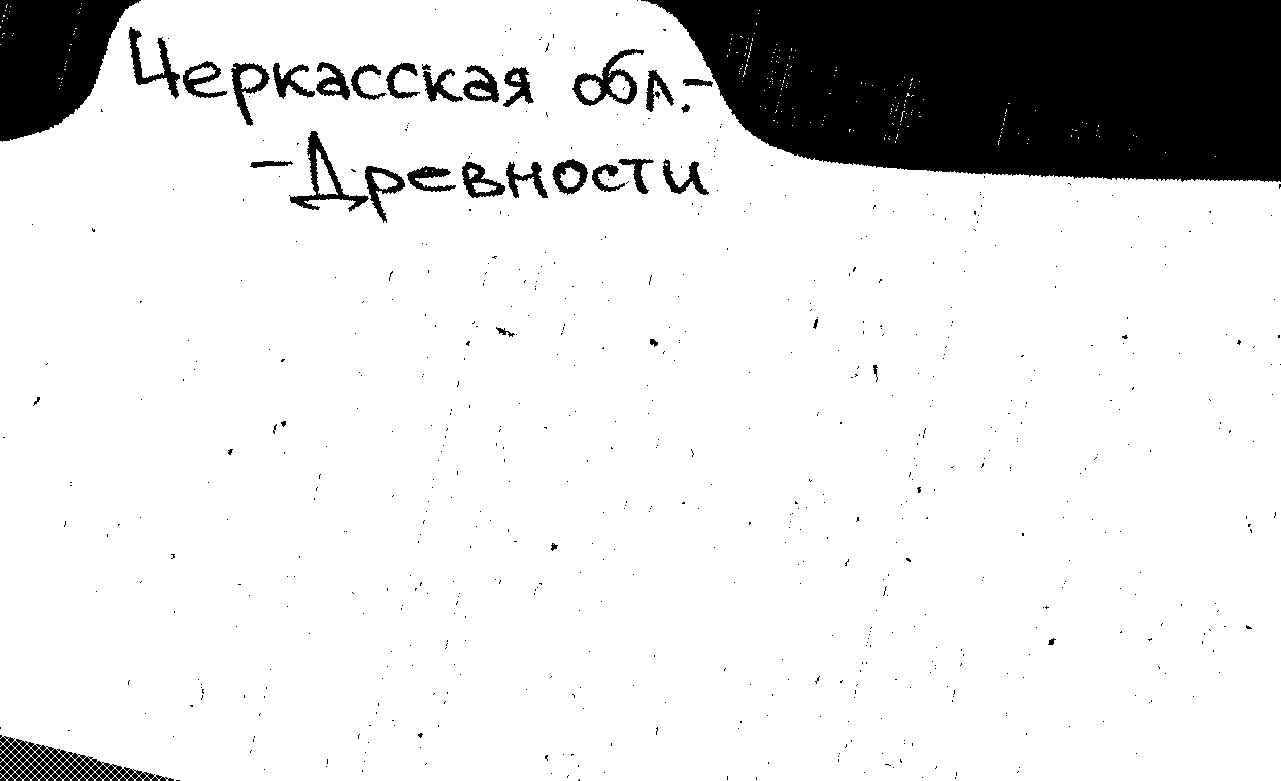 Черкасская обл.-
-Древности